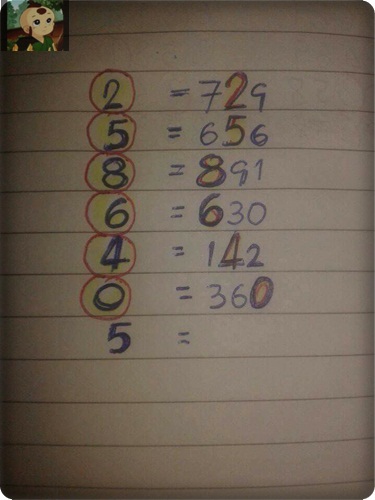 2 = 729
5 = 656
8 = 891
6 = 630
4 = 142
0 = 360
5 =